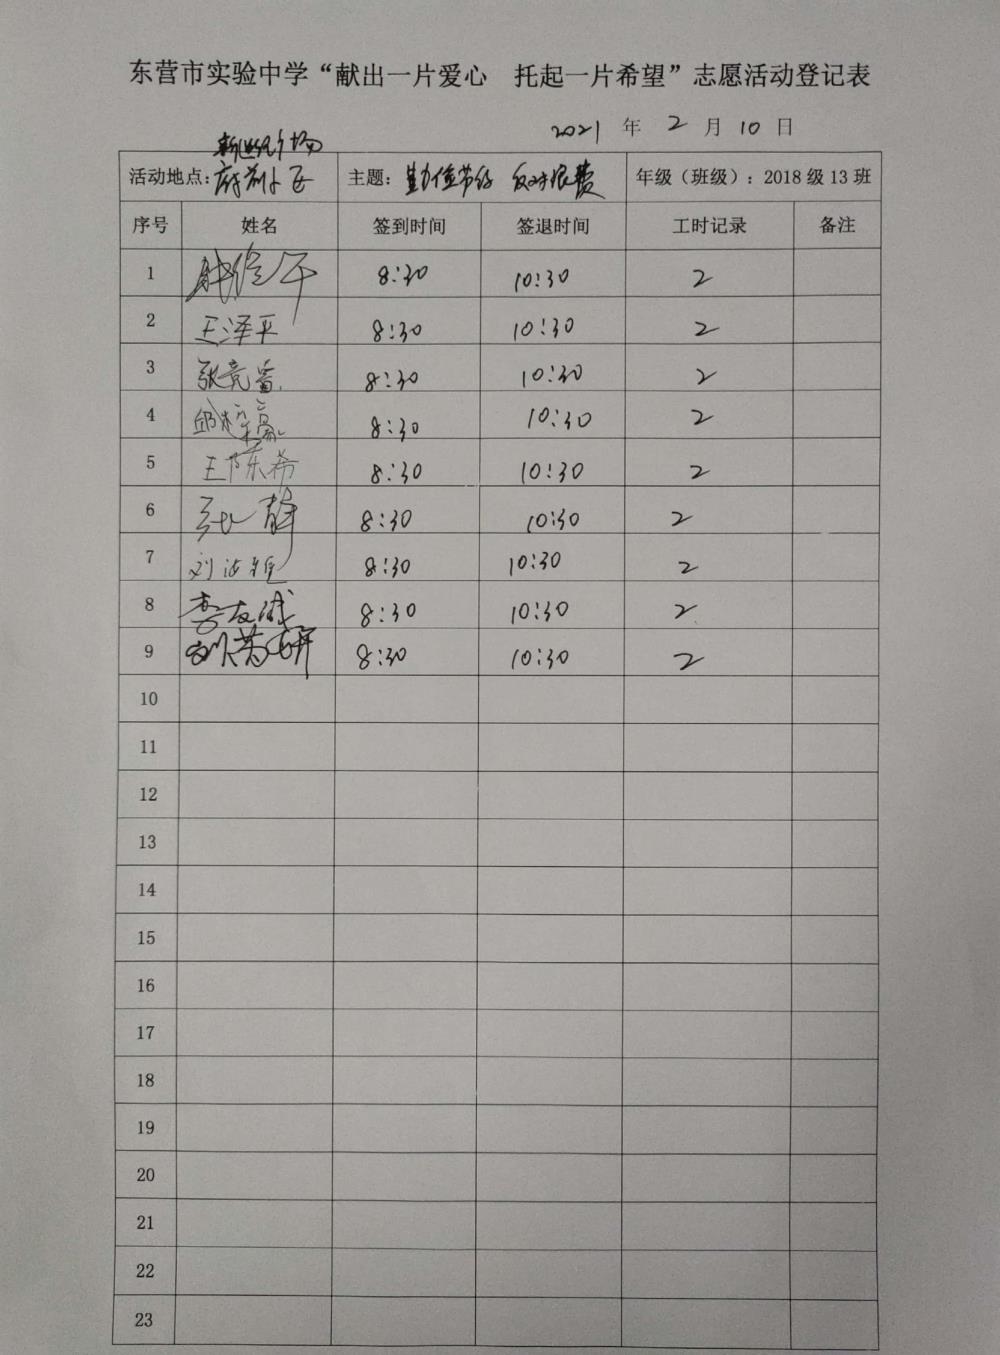 东营市实验中学“献出一片爱心 托起一片希望”志愿活动登记表
2021 年 2 月 10 日
新世纪广场
活动地点：府前小区 主题：勤俭节约 反对浪费 年级（班级）：2018 级 13 班
序号 姓名 签到时间 签退时间 工时记录 备注
1 8:30 10:30 2
2 王泽平 8:30 10:30 2
3 张竞 8:30 10:30 2
4 8:30 10:30 2
5 王陈希 8:30 10:30 2
6 张静 8:30 10:30 2
7 刘 8:30 10:30 2
8 李友诚 8:30 10:30 2
9 刘 妍 8:30 10:30 2
10
11
12
13
14
15
16
17
18
19
20
21
22
23